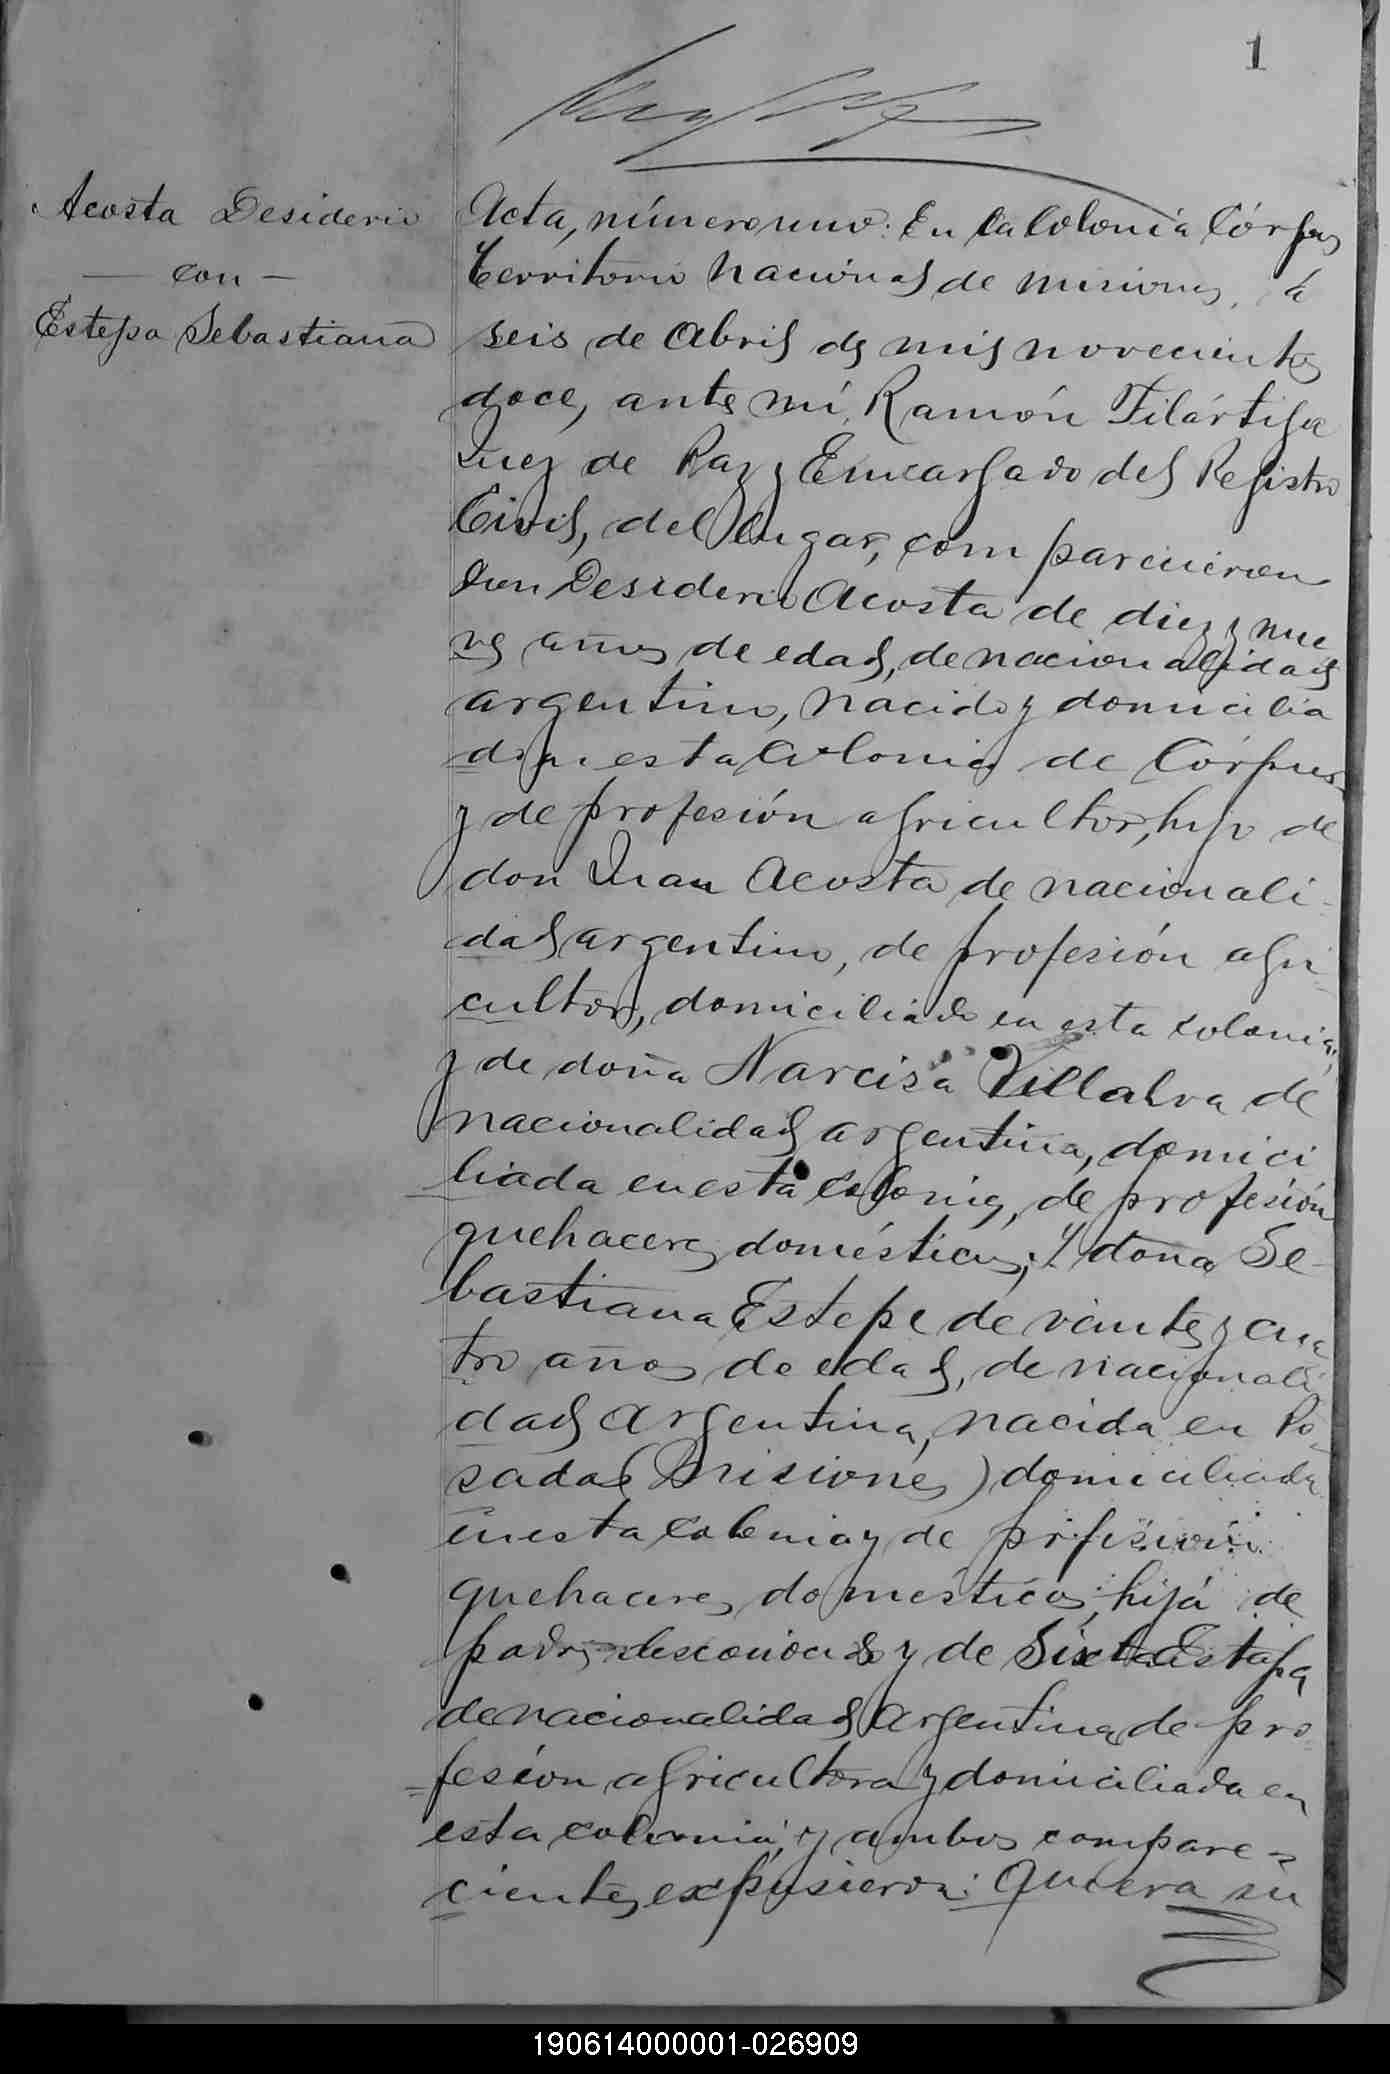 1
Acosta Desiderio
— con —
Estepa Sebastiana
Acta, número uno: En la Colonia Córpus
Territorio Nacional de Misiones, á
seis de Abril de mil novecientos
doce, ante mí, Ramón Filártiga
Juez de Paz y Encargado del Registro
Civil, del lugar, comparecieron
don Desiderio Acosta de diez y nue
ve años de edad, de nacionalidad
argentino, nacido y domicilia
do en esta Colonia de Córpus
y de profesión agricultor, hijo de
don Juan Acosta de nacionali-
dad argentino, de profesión agri-
cultor, domiciliado en esta colonia,
y de doña Narcisa Villalva de
nacionalidad argentina, domici
liada en esta Colonia, de profesión
quehaceres domésticos; Y dona Se-
bastiana Estepe de veinte y cua
tro años de edad, de nacionali
dad Argentina, nacida en Po-
sadas (Misiones) domiciliada
en esta Colonia y de profisión
quehaceres domésticos, hijá de
padre desconocido y de Sixta Estepa
de nacionalidad Argentina, de pro-
fesión agricultora y domiciliada en
esta colonia, y ambos compare-
cientes expusieron: Que era su
190614000001-026909